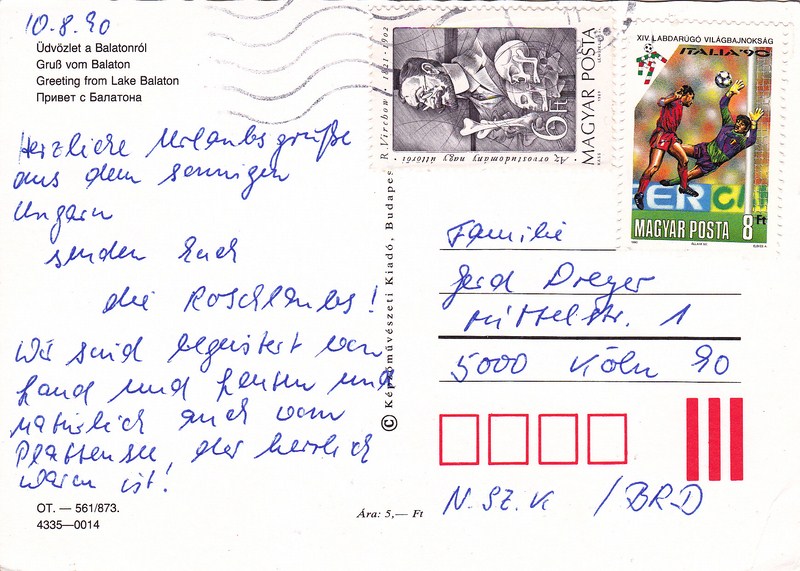 10.8.90
Üdvözlet a Balatonról
Gruß vom Balaton
Greeting from Lake Balaton
Привет с Балатона
Herzliche Urlaubsgrüße
aus dem sonnigen
Ungarn
senden Euch
die Roschlaubs!
Wir sind begeistert von
Land und Leuten und
natürlich auch vom
Plattensee, der herrlich
warm ist!
OT. — 561/873.
4335—0014
Ára: 5,— Ft
© Képzőművészeti Kiadó, Budapes
R. Virchow · 1821-1902
Az orvostudomány nagy úttörői
6 Ft
MAGYAR POSTA
XIV. LABDARÚGÓ VILÁGBAJNOKSÁG
ITALIA '90
MAGYAR POSTA 8 Ft
Familie
Gerd Dreyer
Mittelstr. 1
5000 Köln 90
N. SZ. K / BRD